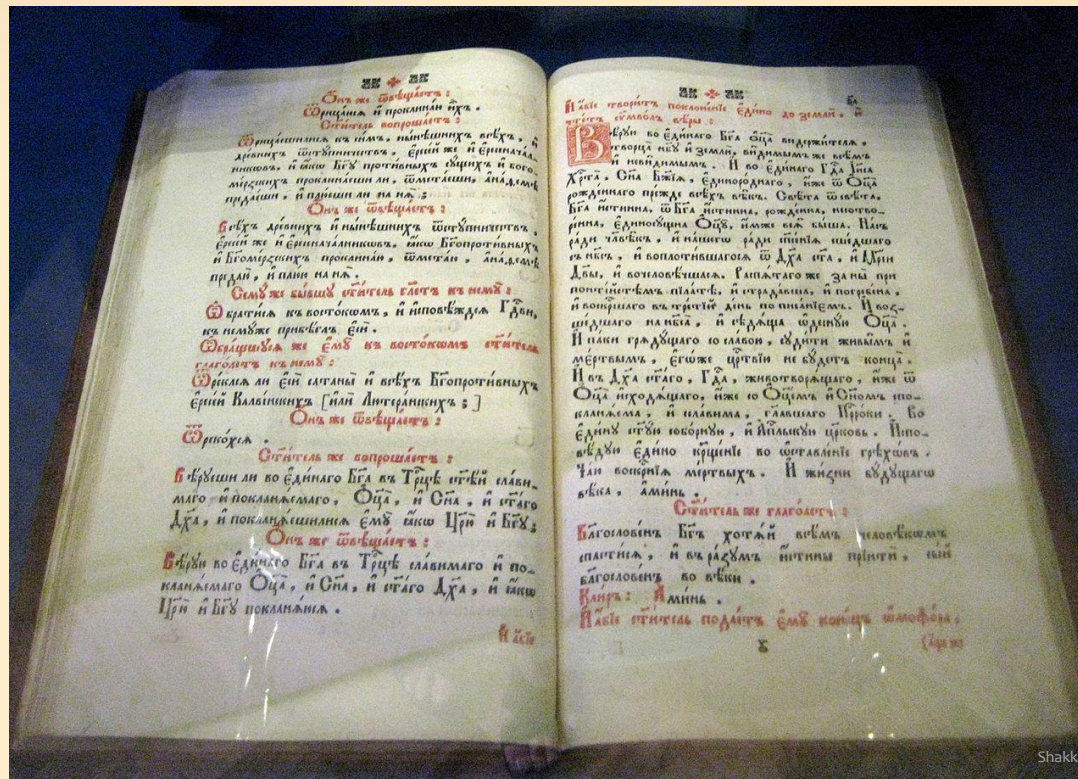 Ѻнъ же ѿвѣщаетъ:
Ѿрицаюсѧ и проклинаю ихъ.
Ст҃итель вопрошаетъ:
Ѿрицаешилисѧ къ симъ, нынѣшнихъ всѣхъ, и
древнихъ ѿступничествъ, ересей же и ересеначал-
никовъ, и ꙗкѡ Бг҃ꙋ противныхъ сꙋщихъ и бого-
мерзскихъ проклинаеши ли, ѿметаеши, анаѳемѣ
предаеши, и плюеши ли на нѧ;
Ѻнъ же ѿвѣщаетъ:
Всѣхъ древнихъ и нынѣшнихъ ѿстꙋпничествъ,
ересей же и ересеначалниковъ, ꙗкѡ Бг҃опротивныхъ
и Бг҃омерзскихъ проклинаю, ѿметаю, анаѳемѣ
предаю, и плюю на нѧ.
Семꙋ же бывшꙋ ст҃итель гл҃етъ къ немꙋ:
Ѡбратисѧ къ востокомъ, и исповѣждсѧ Гдⷭ҇ви,
къ немꙋже прибѣглъ еси.
Ѡбращшꙋсѧ же емꙋ къ востокомъ ст҃итель
глаголетъ къ немꙋ:
Ѿреклсѧ ли еси сатаны и всѣхъ Бг҃опротивныхъ
ересей Калвинскихъ [или Лютеранскихъ;]
Ѻнъ же ѿвѣщаетъ:
Ѿрекохсѧ.
Ст҃итель же вопрошаетъ:
Вѣрꙋеши ли во единаго Бг҃а въ Трⷪ҇цѣ ст҃ѣй слави-
маго и покланѧемаго, Ѻц҃а, и Сн҃а, и ст҃аго
Дх҃а, и покланѧешилисѧ емꙋ ꙗкѡ Цр҃ю и Бг҃ꙋ;
Ѻнъ же ѿвѣщаетъ:
Вѣрꙋю во единаго Бг҃а въ Трⷪ҇цѣ славимаго и по-
кланѧемаго Ѻц҃а, и Сн҃а, и ст҃аго Дх҃а, и ꙗкѡ
Цр҃ю и Бг҃ꙋ покланѧюсѧ.
И абїе
И абїе творитъ поклоненїе едино до земли, и
чтетъ сѵмволъ вѣры:
Вѣрꙋю во единаго Бг҃а Ѻц҃а вседержителѧ,
творца нб҃ꙋ и земли, видимымъ же всѣмъ
и невидимымъ. И во единаго Гдⷭ҇а Іиса
Хрⷭ҇та, Сн҃а Бж҃їѧ, единороднаго, иже ѿ Ѻц҃а
рожденнаго прежде всѣхъ вѣкъ. Свѣта ѿ свѣта,
Бг҃а истинна, ѿ Бг҃а истинна, рожденна, несотво-
ренна, единосꙋщна Ѻц҃ꙋ, имже всѧ быша. Насъ
ради чл҃вѣкъ, и нашегѡ ради сп҃сенїѧ сшедшаго
съ нб҃съ, и воплотившагосѧ ѿ Дх҃а ст҃а, и Мр҃їи
Дв҃ы, и вочеловѣчшасѧ. Распѧтаго же за ны при
понтїйстѣмъ пїлатѣ, и страдавша, и погребена,
и воскресшаго въ третїй день по писанїемъ. И воз-
шедшаго на нб҃са, и сѣдѧща ѡдеснꙋю Ѻц҃а.
И паки грѧдꙋщаго со славою, сꙋдити живымъ и
мертвымъ, егѡже црⷭ҇твїю не бꙋдетъ конца.
И въ Дх҃а ст҃аго, Гдⷭ҇а, животворѧщаго, иже ѿ
Ѻц҃а исходѧщаго, иже со Ѻц҃емъ и Сн҃омъ спо-
кланѧема, и славима, гл҃авшаго Пр҃роки. Во
единꙋ ст҃ꙋю соборнꙋю, и Апⷭ҇лскꙋю црковь. Испо-
вѣдꙋю едино крщ҃енїе во ѡставленїе грѣхѡвъ.
Чаю воскрⷭ҇нїѧ мертвыхъ. И жизни бꙋдꙋщагѡ
вѣка, аминь.
Ст҃итель же глаголетъ:
Благословенъ Бг҃ъ хотѧй всѣмъ человѣкѡмъ
спастисѧ, и въ разꙋмъ истины прїити, сый
благословенъ во вѣки.
Клиръ: Аминь.
И абїе ст҃итель подаетъ емꙋ конецъ ѡмофора,
Shakk